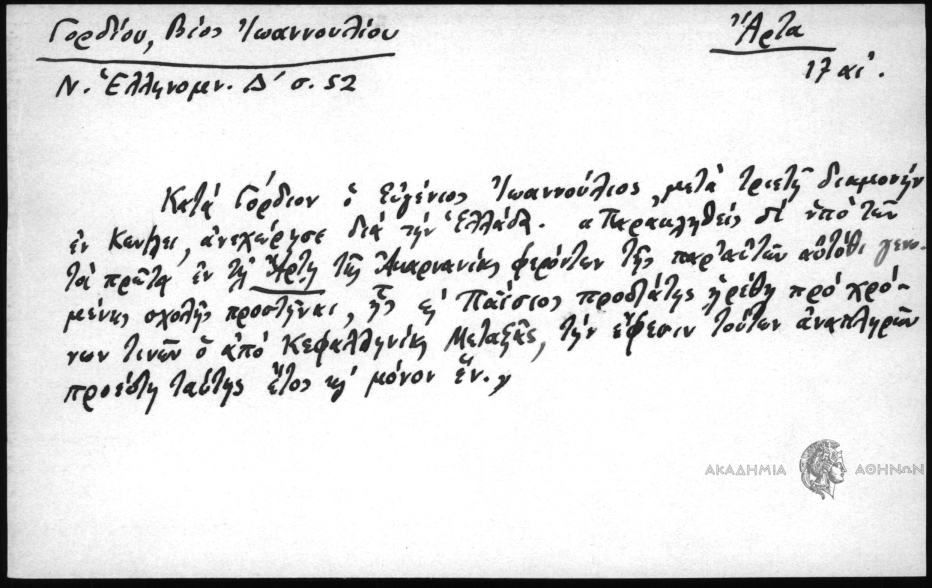 Γορδίου, Βίος Ἰωαννουλίου
Ἄρτα
Ν. Ἑλληνομν. Δ' σ. 52
17 αἰ.
Κατά Γόρδιον ὁ Εὐγένιος Ἰωαννούλιος, μετά τριετῆ διαμονήν
ἐν Κων/λει, ἀνεχώρησε διά τήν Ἑλλάδα. "Παρακληθείς δέ ὑπό τῶν
τά πρῶτα ἐν τῇ Ἄρτῃ τῆς Ἀκαρνανίας φερόντων τῆς παρ' αὐτῶν αὐτόθι γενο-
μένης σχολῆς προστῆναι, ἧς Παΐσιος προστάτης ᾑρέθη πρό χρό-
νων τινῶν ὁ ἀπό Κεφαλληνίας Μεταξᾶς, τήν ἔφεσιν τούτων ἀναπληρῶν
προέστη ταύτης ἔτος κ' μόνον ἕν."
ΑΚΑΔΗΜΙΑ ΑΘΗΝΩΝ